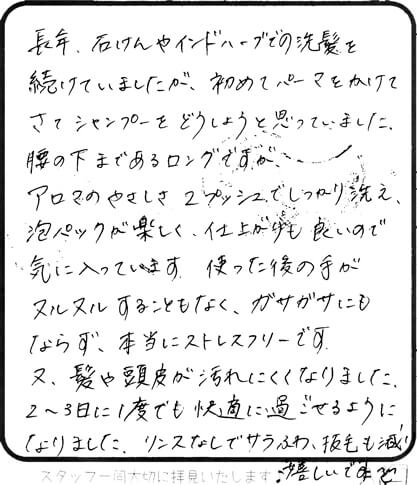 長年、石けんやインドハーブでの洗髪を
続けていましたが、初めてパーマをかけて
さてシャンプーをどうしようと思っていました、
腰の下まであるロングですが、
アロマのやさしさ 2プッシュでしっかり洗え、
泡パックが楽しく、仕上がりも良いので
気に入っています 使った後の手が
ヌルヌルすることもなく、ガサガサにも
ならず、本当にストレスフリーです
又、髪や頭皮が汚れにくくなりました、
2〜3日に1度でも快適に過ごせるように
なりました、リンスなしでサラふわ、抜毛も減り
スタッフ一同大切に拝見いたします
嬉しいです